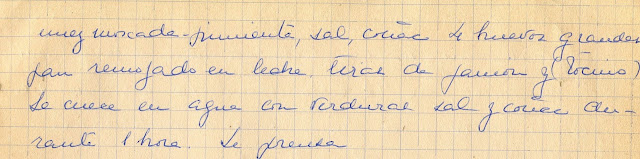 nuez moscada - pimienta, sal, coñac 4 huevos grandes
pan remojado en leche. tiras de jamón y (tocino)
Se cuece en agua con verduras sal y coñac du-
rante 1 hora. Se prensa